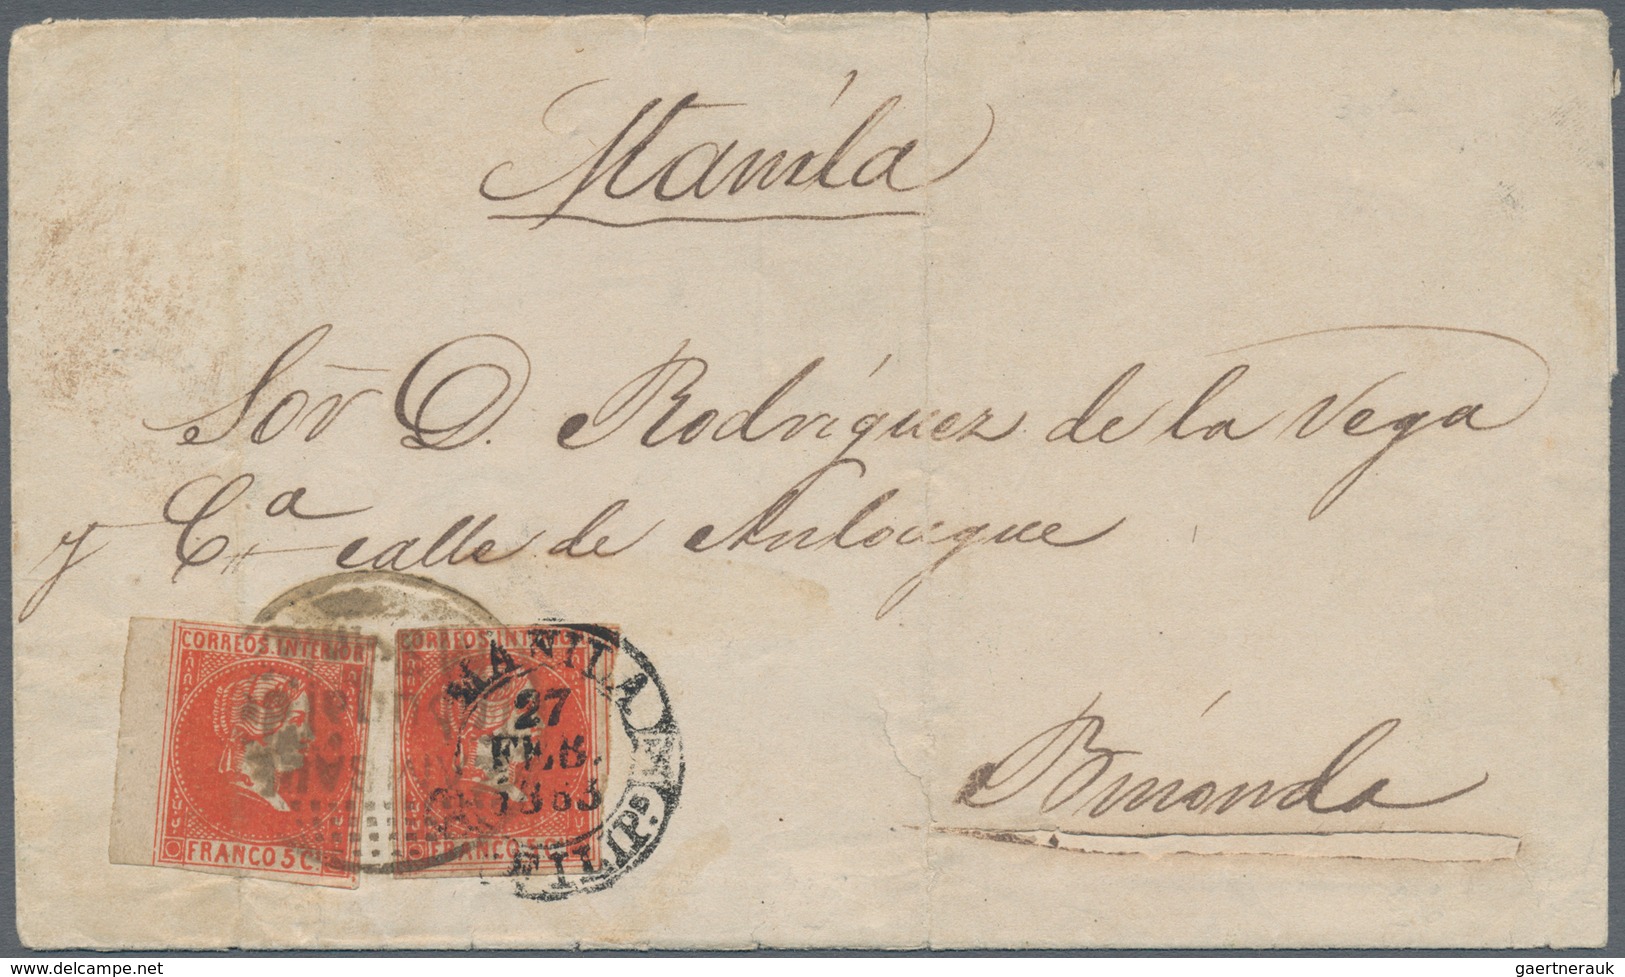 Manila
Sor̄ D. Rodríguez de la Vega
y Cª calle de Anloague
CORREOS. INTERIOR
CORREOS. INTERIOR
MANILA
27
FEB.
1863
FILIPs.
FRANCO 5 C.
FRANCO 5 C.
Binondo
delcampe.net
gaertnerauk